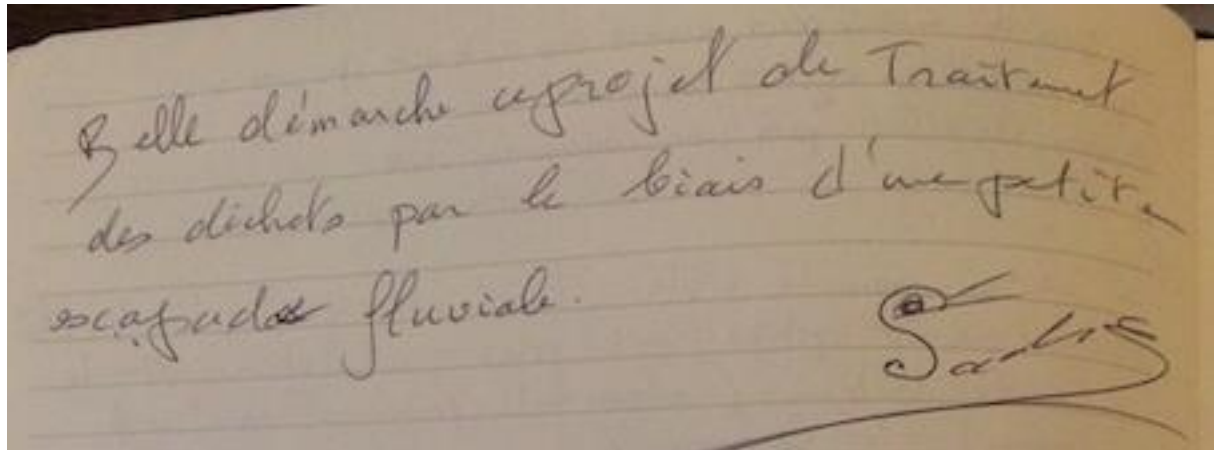 Belle démarche ce projet de Traitement
des déchets par le biais d'une petite
escapade fluviale.